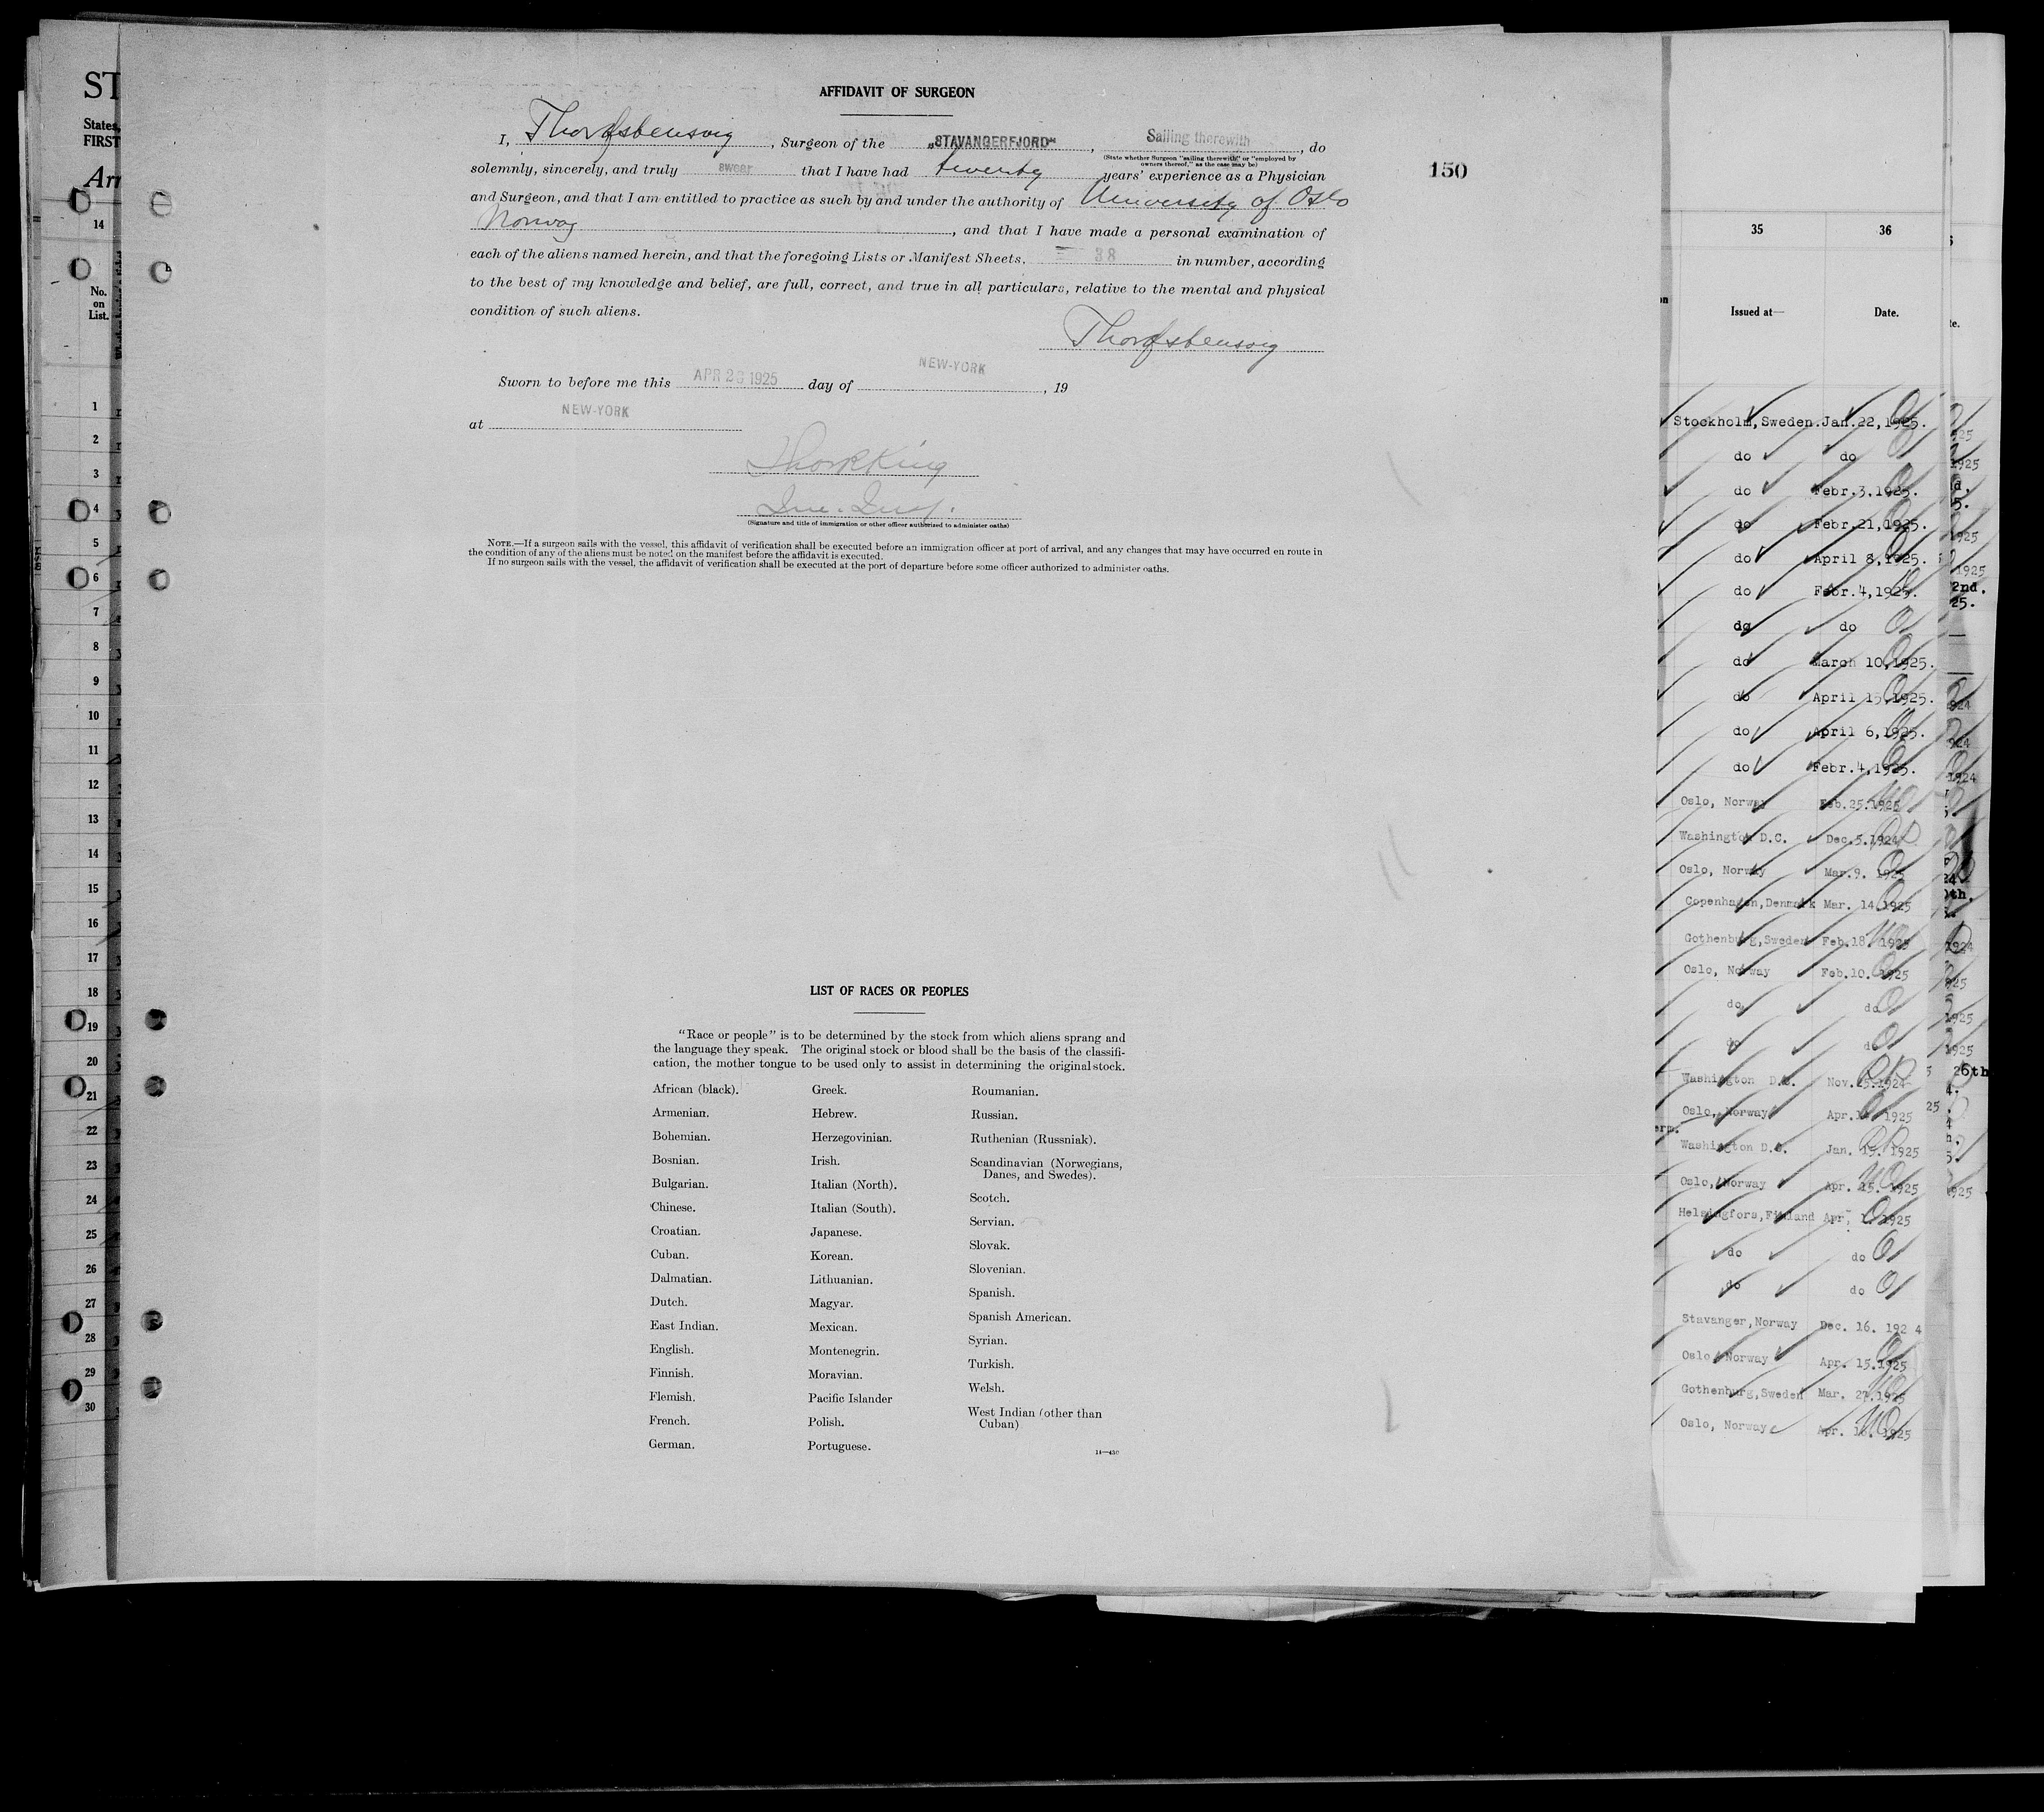 ST
States,
FIRST
Arr
14
No.
on
List.
1
2
3
4
5
6
7
8
9
10
11
12
13
14
15
16
17
18
19
20
21
22
23
24
25
26
27
28
29
30
AFFIDAVIT OF SURGEON
I, , Surgeon of the „STAVANGERFJORD“, Sailing therewith, do
(State whether Surgeon "sailing therewith" or "employed by
owners thereof," as the case may be)
150
solemnly, sincerely, and truly swear that I have had twenty years' experience as a Physician
and Surgeon, and that I am entitled to practice as such by and under the authority of University of Oslo
Norway, and that I have made a personal examination of
each of the aliens named herein, and that the foregoing Lists or Manifest Sheets, 38 in number, according
to the best of my knowledge and belief, are full, correct, and true in all particulars, relative to the mental and physical
condition of such aliens.
Sworn to before me this APR 26 1925 day of NEW-YORK, 19
at NEW-YORK
(Signature and title of immigration or other officer authorized to administer oaths)
NOTE.—If a surgeon sails with the vessel, this affidavit of verification shall be executed before an immigration officer at port of arrival, and any changes that may have occurred en route in
the condition of any of the aliens must be noted on the manifest before the affidavit is executed.
If no surgeon sails with the vessel, the affidavit of verification shall be executed at the port of departure before some officer authorized to administer oaths.
LIST OF RACES OR PEOPLES
"Race or people" is to be determined by the stock from which aliens sprang and
the language they speak. The original stock or blood shall be the basis of the classifi-
cation, the mother tongue to be used only to assist in determining the original stock.
African (black).
Armenian.
Bohemian.
Bosnian.
Bulgarian.
Chinese.
Croatian.
Cuban.
Dalmatian.
Dutch.
East Indian.
English.
Finnish.
Flemish.
French.
German.
Greek.
Hebrew.
Herzegovinian.
Irish.
Italian (North).
Italian (South).
Japanese.
Korean.
Lithuanian.
Magyar.
Mexican.
Montenegrin.
Moravian.
Pacific Islander
Polish.
Portuguese.
Roumanian.
Russian.
Ruthenian (Russniak).
Scandinavian (Norwegians,
Danes, and Swedes).
Scotch.
Servian.
Slovak.
Slovenian.
Spanish.
Spanish American.
Syrian.
Turkish.
Welsh.
West Indian (other than
Cuban)
35 36
Issued at— Date.
Stockholm,Sweden. Jan.22,1925.
do do
do Febr.3,1925.
do Febr.21,1925.
do April 8,1925.
do Febr.4,1925.
do do
do March 10,1925.
do April 15,1925.
do April 6,1925.
do Febr.4,1925.
Oslo, Norway Feb.25.1925
Washington D.C. Dec.5.1924
Oslo, Norway Mar.9. 1925
Copenhagen,Denmark Mar. 14.1925
Gothenburg,Sweden Feb.18. 1925
Oslo, Norway Feb.10. 1925
do do
do do
Washington D.C. Nov. 1924
Oslo, Norway Apr. 1925
Washington D.C. Jan. 1925
Oslo, Norway Apr. 15. 1925
Helsingfors,Finland Apr, 1925
do do
do do
Stavanger,Norway Dec. 16. 192 4
Oslo Norway Apr. 15.1925
Gothenburg,Sweden Mar. 1925
Oslo, Norway Apr. 1925